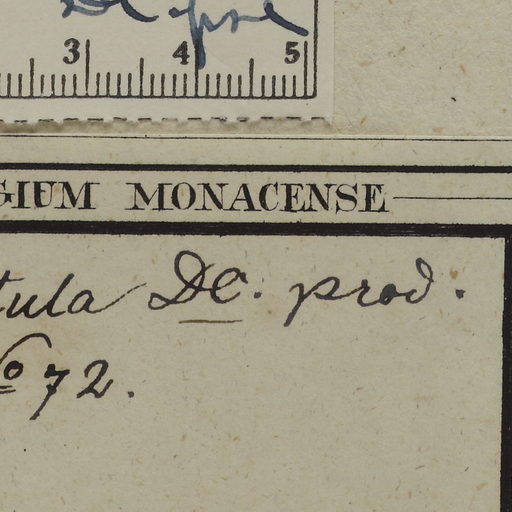 DC prod
3 4 5
GIUM MONACENSE
tula DC. prod.
No 72.